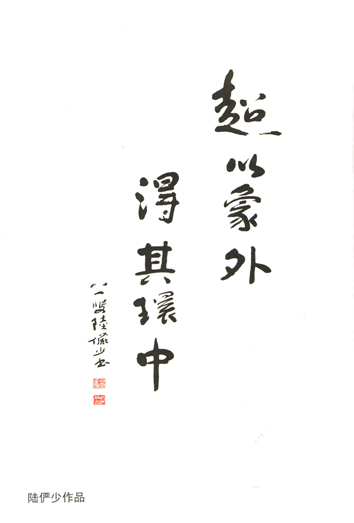 超以象外
得其環中
八一叟陸儼少书
陆俨少作品